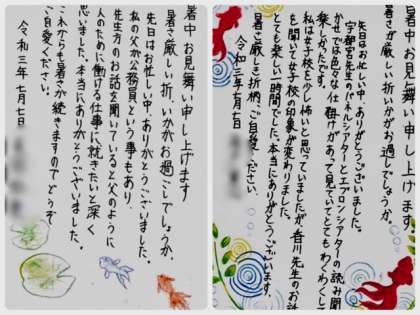 暑中お見舞い申し上げます
暑さ厳しい折、いかがお過ごしでしょうか。
先日はお忙しい中、ありがとうございました。
私の父が公務員という事もあり、
先生方のお話を聞いていると父のように
人のために働ける仕事に就きたいと深く
思いました。本当にありがとうございました。
これからも暑さが続きますのでどうぞ
ご自愛ください。
令和三年七月七日
暑中お見舞い申し上げます。
暑さが厳しい折いかがお過しでしょうか。
先日はお忙しい中、ありがとうございました。
宇都宮先生のパネルシアターとエプロンシアターの読み聞
かせでは色々な仕掛けがあって見ていてとてもわくわくして
楽しかったです。
私は女子校を少し怖いと思っていましたが、香川先生のお話
を聞いて女子校の印象が変わりました。
とても楽しい一時間でした。本当にありがとうございます。
暑さ厳しき折柄、ご自愛ください。
令和三年七月七日